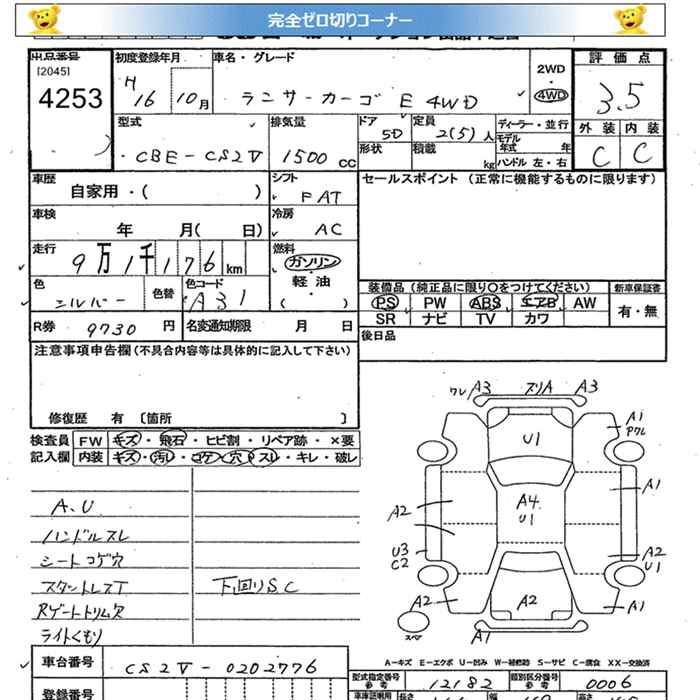 完全ゼロ切りコーナー
出品番号 初度登録年月 車名・グレード 2WD・4WD 評価点
[2045]
4253 H16 10月 ランサーカーゴ E 4WD 3.5
型式 排気量 ドア 定員 ディーラー・並行 外装 内装
CBE-CS2V 1500cc 5D 2(5)人 モデル年式 年 C C
形状 積載 kg ハンドル 左・右
車歴 シフト セールスポイント (正常に機能するものに限ります)
自家用・( ) FAT
車検 冷房
年 月( 日) AC
走行 燃料
9万1千176km ガソリン・軽油・( )
色 色替 色コード 装備品(純正品に限り○をつけてください) 新車保証書
シルバー A31 PS PW ABS エアB AW 有・無
SR ナビ TV カワ
R券 9730円 名変通知期限 月 日 後日品
注意事項申告欄(不具合内容等は具体的に記入して下さい)
修復歴 有 〔箇所 〕
検査員 FW キズ・飛石・ヒビ割・リペア跡・×要
記入欄 内装 キズ・汚レ・コゲ・穴・スレ・キレ・破レ
A.U
ハンドルスレ
シートコゲ穴
スタットレスT 下回りS.C
Rゲートトリム欠
ライトくもり
ワレ A3 ズリA A3
U1 A1
Pワレ
A1
A4
U1
A2 A2
U1
U3
C2
A2 A2 A1
スペア A1
A-キズ E-エクボ U-凹み W-補修跡 S-サビ C-腐食 XX-交換済
車台番号 CS2V-0202776
型式指定番号 参考 12182 類別区分番号 参考 0006
登録番号